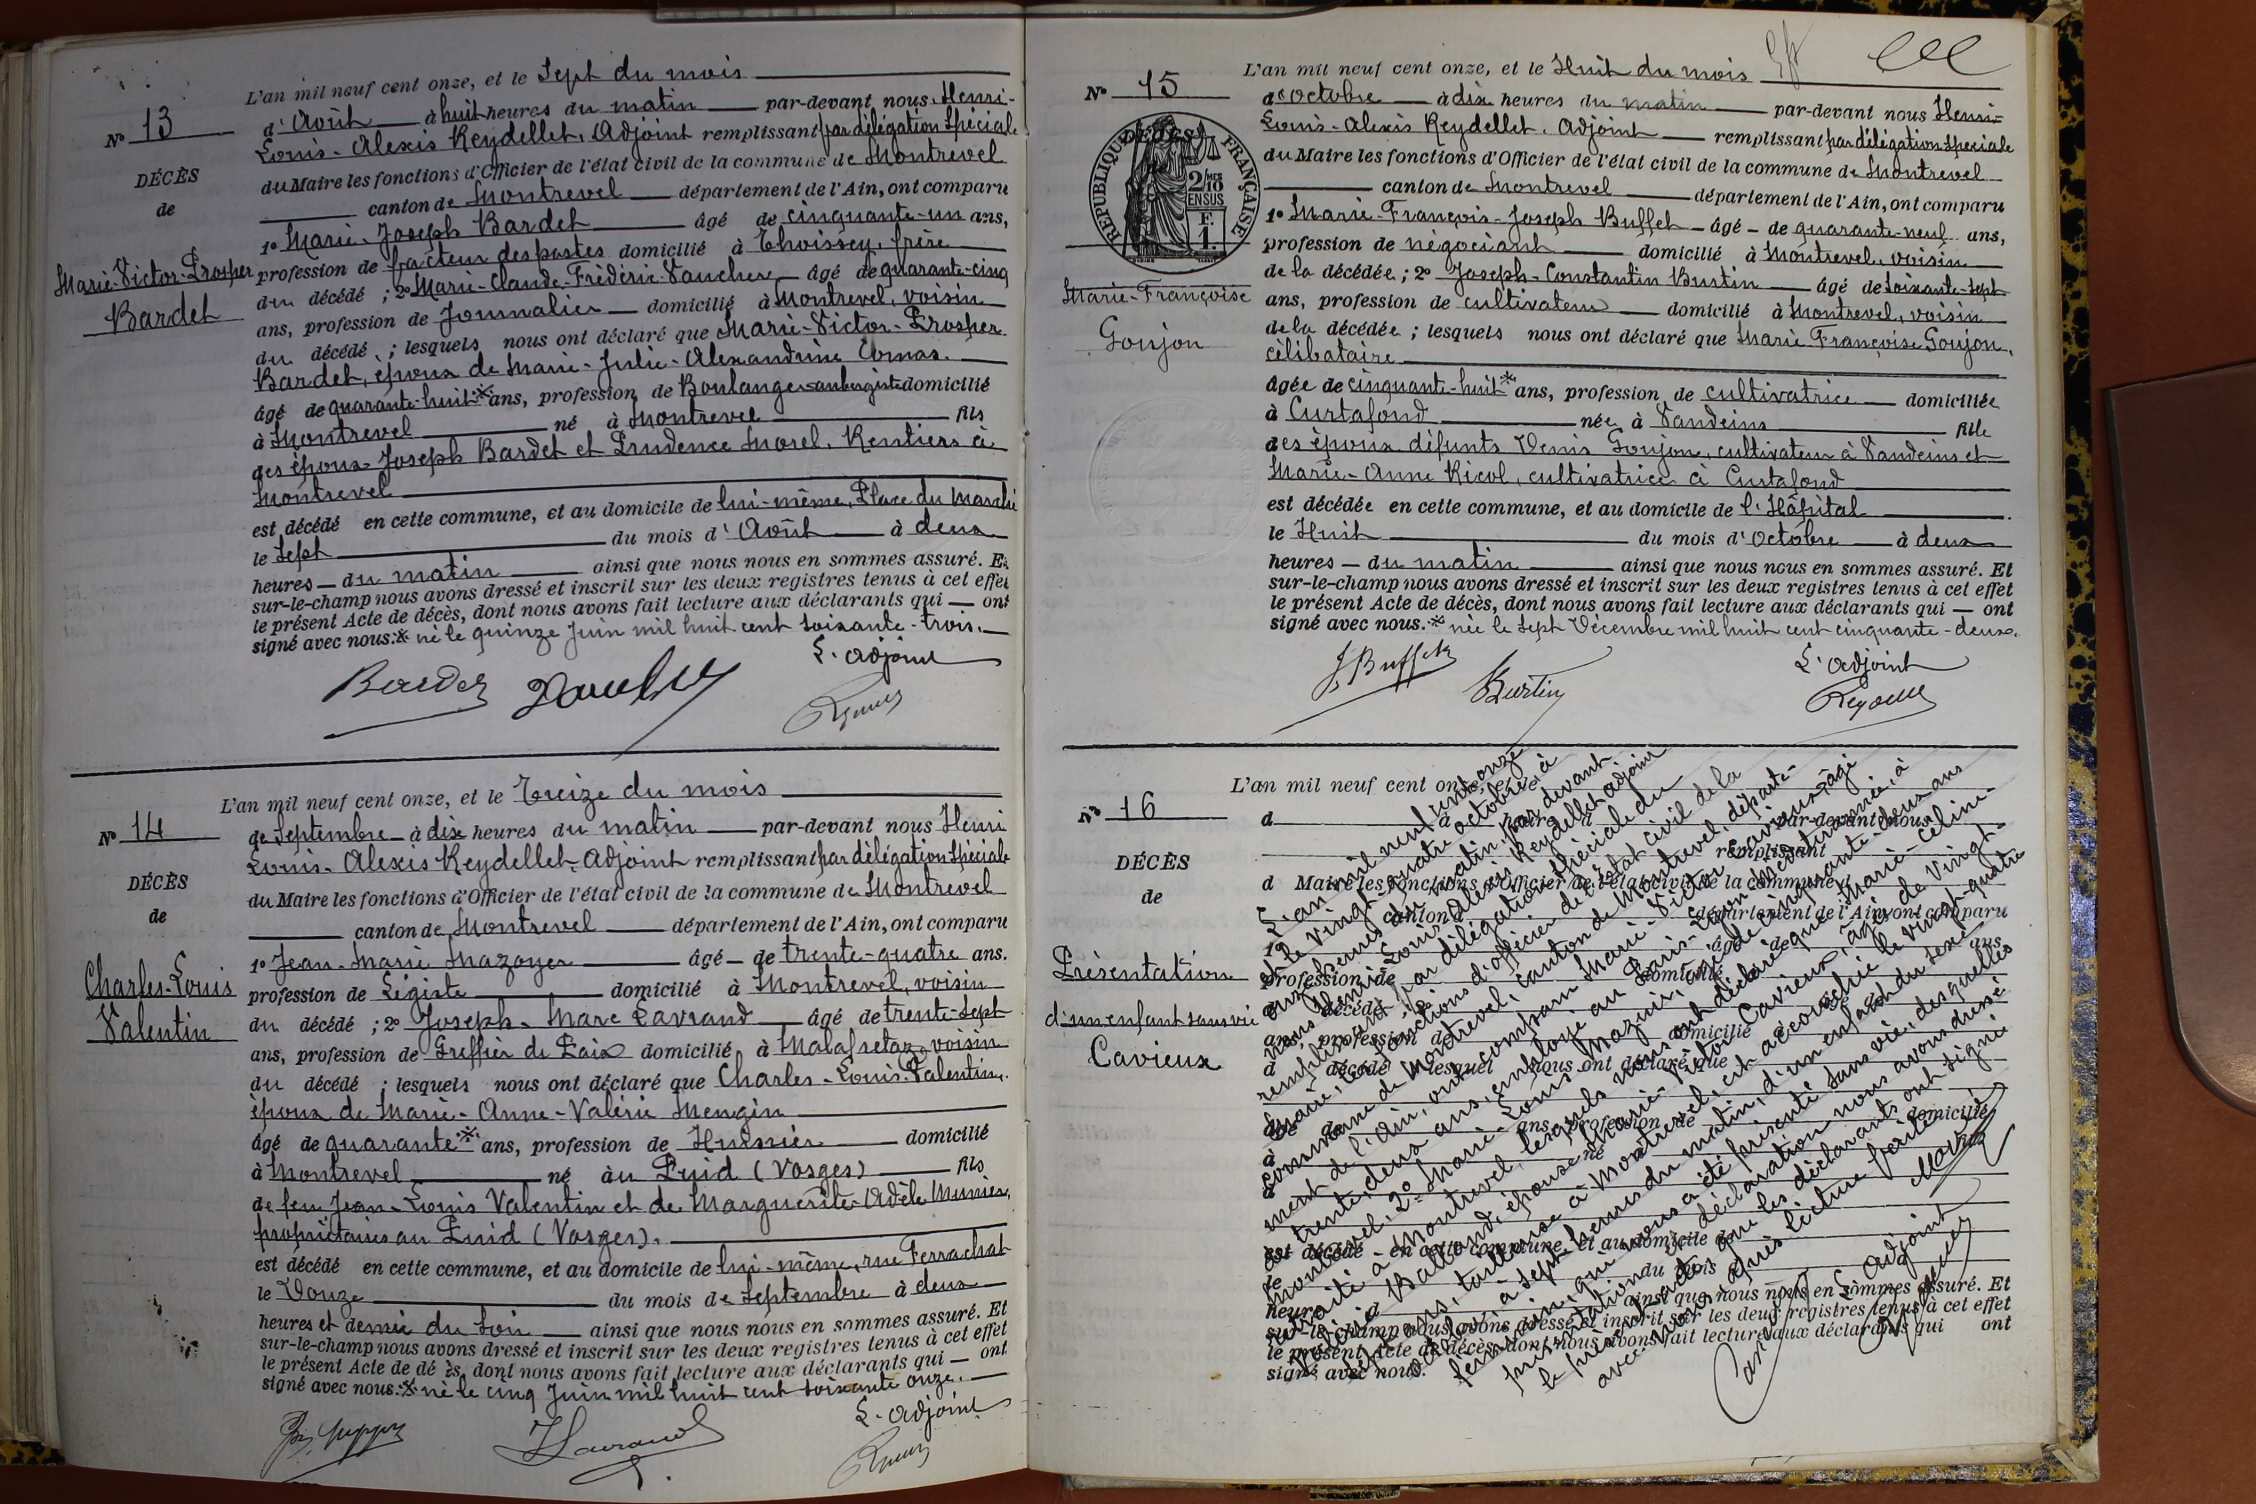 L'an mil neuf cent onze, et le Sept du mois
N° 13
d'Août à huit heures du matin par-devant nous Henri-
Louis-Alexis Reydellet, Adjoint remplissant par délégation Spéciale
DÉCÈS
du Maire les fonctions d'Officier de l'état civil de la commune de Montrevel
de
canton de Montrevel département de l'Ain, ont comparu
1° Marie-Joseph Bardet âgé de cinquante-un ans,
Marie-Victor-Prosper
profession de facteur des postes domicilié à Thoissey, frère
Bardet
du décédé ; 2° Marie-Claude-Frédéric Vaucher âgé de quarante-cinq
ans, profession de Journalier domicilié à Montrevel, voisin
du décédé ; lesquels nous ont déclaré que Marie-Victor-Prosper
Bardet, époux de Marie-Julie-Alexandrine Comas.
âgé de quarante-huit * ans, profession de Boulanger aubergiste domicilié
à Montrevel né à Montrevel fils
des époux Joseph Bardet et Prudence Morel, Rentiers à
Montrevel
est décédé en cette commune, et au domicile de lui-même, Place du Marché
le Sept du mois d'Août à deux
heures du matin ainsi que nous nous en sommes assuré. Et
sur-le-champ nous avons dressé et inscrit sur les deux registres tenus à cet effet
le présent Acte de décès, dont nous avons fait lecture aux déclarants qui ont
signé avec nous. * né le quinze Juin mil huit cent soixante-trois.
L'adjoint
Bardet
L'an mil neuf cent onze, et le Treize du mois
N° 14
de Septembre à dix heures du matin par-devant nous Henri
Louis-Alexis Reydellet, Adjoint remplissant par délégation Spéciale
DÉCÈS
du Maire les fonctions d'Officier de l'état civil de la commune de Montrevel
de
canton de Montrevel département de l'Ain, ont comparu
1° Jean-Marie Mazoyer âgé de trente-quatre ans.
Charles-Louis
profession de Légiste domicilié à Montrevel, voisin
Valentin
du décédé ; 2° Joseph-Marc Lavrand âgé de trente-sept
ans, profession de Greffier de Paix domicilié à Malafretaz, voisin
du décédé ; lesquels nous ont déclaré que Charles-Louis Valentin,
époux de Marie-Anne-Valérie Mengin
âgé de quarante * ans, profession de Huissier domicilié
à Montrevel né au Puid (Vosges) fils
de feu Jean-Louis Valentin et de Marguerite-Adèle Munier,
propriétaires au Puid (Vosges).
est décédé en cette commune, et au domicile de lui-même, rue Ferrachat
le Douze du mois de Septembre à deux
heures et demie du soir ainsi que nous nous en sommes assuré. Et
sur-le-champ nous avons dressé et inscrit sur les deux registres tenus à cet effet
le présent Acte de dé ès, dont nous avons fait lecture aux déclarants qui ont
signé avec nous. * né le cinq Juin mil huit cent soixante onze.
L'adjoint
Lavrand
L'an mil neuf cent onze, et le Huit du mois
N° 15
d'Octobre à dix heures du matin par-devant nous Henri-
Louis-Alexis Reydellet, Adjoint remplissant par délégation Spéciale
du Maire les fonctions d'Officier de l'état civil de la commune de Montrevel
canton de Montrevel département de l'Ain, ont comparu
DÉCÈS
RÉPUBLIQUE FRANÇAISE
2/10 MES
EN SUS
F.
1.
1° Marie-François-Joseph Buffet âgé de quarante-neuf ans,
profession de négociant domicilié à Montrevel, voisin
de la décédée ; 2° Joseph-Constantin Burtin âgé de soixante-sept
Marie-Françoise
ans, profession de cultivateur domicilié à Montrevel, voisin
Goujon
de la décédée ; lesquels nous ont déclaré que Marie Françoise Goujon,
célibataire
âgée de cinquante-huit * ans, profession de cultivatrice domiciliée
à Curtafond née à Vandeins fille
des époux défunts Denis Goujon, cultivateur à Vandeins et
Marie-Anne Ricol, cultivatrice à Curtafond
est décédée en cette commune, et au domicile de l'Hôpital
le Huit du mois d'Octobre à deux
heures du matin ainsi que nous nous en sommes assuré. Et
sur-le-champ nous avons dressé et inscrit sur les deux registres tenus à cet effet
le présent Acte de décès, dont nous avons fait lecture aux déclarants qui ont
signé avec nous. * née le sept Décembre mil huit cent cinquante-deux.
L'adjoint
J. Buffet
Burtin
L'an mil neuf cent onze, et le
N° 16
d à heure d par-devant nous
remplissant
DÉCÈS
d Maire les fonctions d'Officier de l'état civil de la commune d
de
canton d département de l'Ain, ont comparu
1° âgé de ans,
Présentation
profession de domicilié à
d'un enfant sans vie
d décédé ; 2° âgé de
Cavieux
ans, profession de domicilié à
d décédé ; lesquel nous ont déclaré que
âgé de ans, profession de domicilié
à né à fil
d
est décédé en cette commune, et au domicile de
le du mois d à
heure d ainsi que nous nous en sommes assuré. Et
sur-le-champ nous avons dressé et inscrit sur les deux registres tenus à cet effet
le présent Acte de décès, dont nous avons fait lecture aux déclarants qui ont
signé avec nous.
L'an mil neuf cent onze
et le vingt-quatre octobre, à
onze heures du matin, par devant
nous Henri Louis Alexis Reydellet adjoint
remplissant par délégation spéciale du
Maire, les fonctions d'officier de l'état civil de la
commune de Montrevel, canton de Montrevel, départe-
ment de l'Ain, ont comparu Marie-Victor Cavieux, âgé
de trente-deux ans, employé au Paris-Lyon Méditerranée, à
Montrevel, 2° Marie-Louis Mazuir âgé de cinquante-deux ans
retraité à Montrevel, lesquels nous ont déclaré que Marie-Célim-
Balland, épouse Marie-Victor Cavieux, âgée de vingt-
sept ans, tailleuse à Montrevel, est accouchée le vingt-quatre
octobre à sept heures du matin, d'un enfant du sexe
féminin, qui nous a été présenté sans vie, desquelles
présentation et déclaration nous avons dressé
le présent acte que les déclarants ont signé
avec nous après lecture faite
L'adjoint